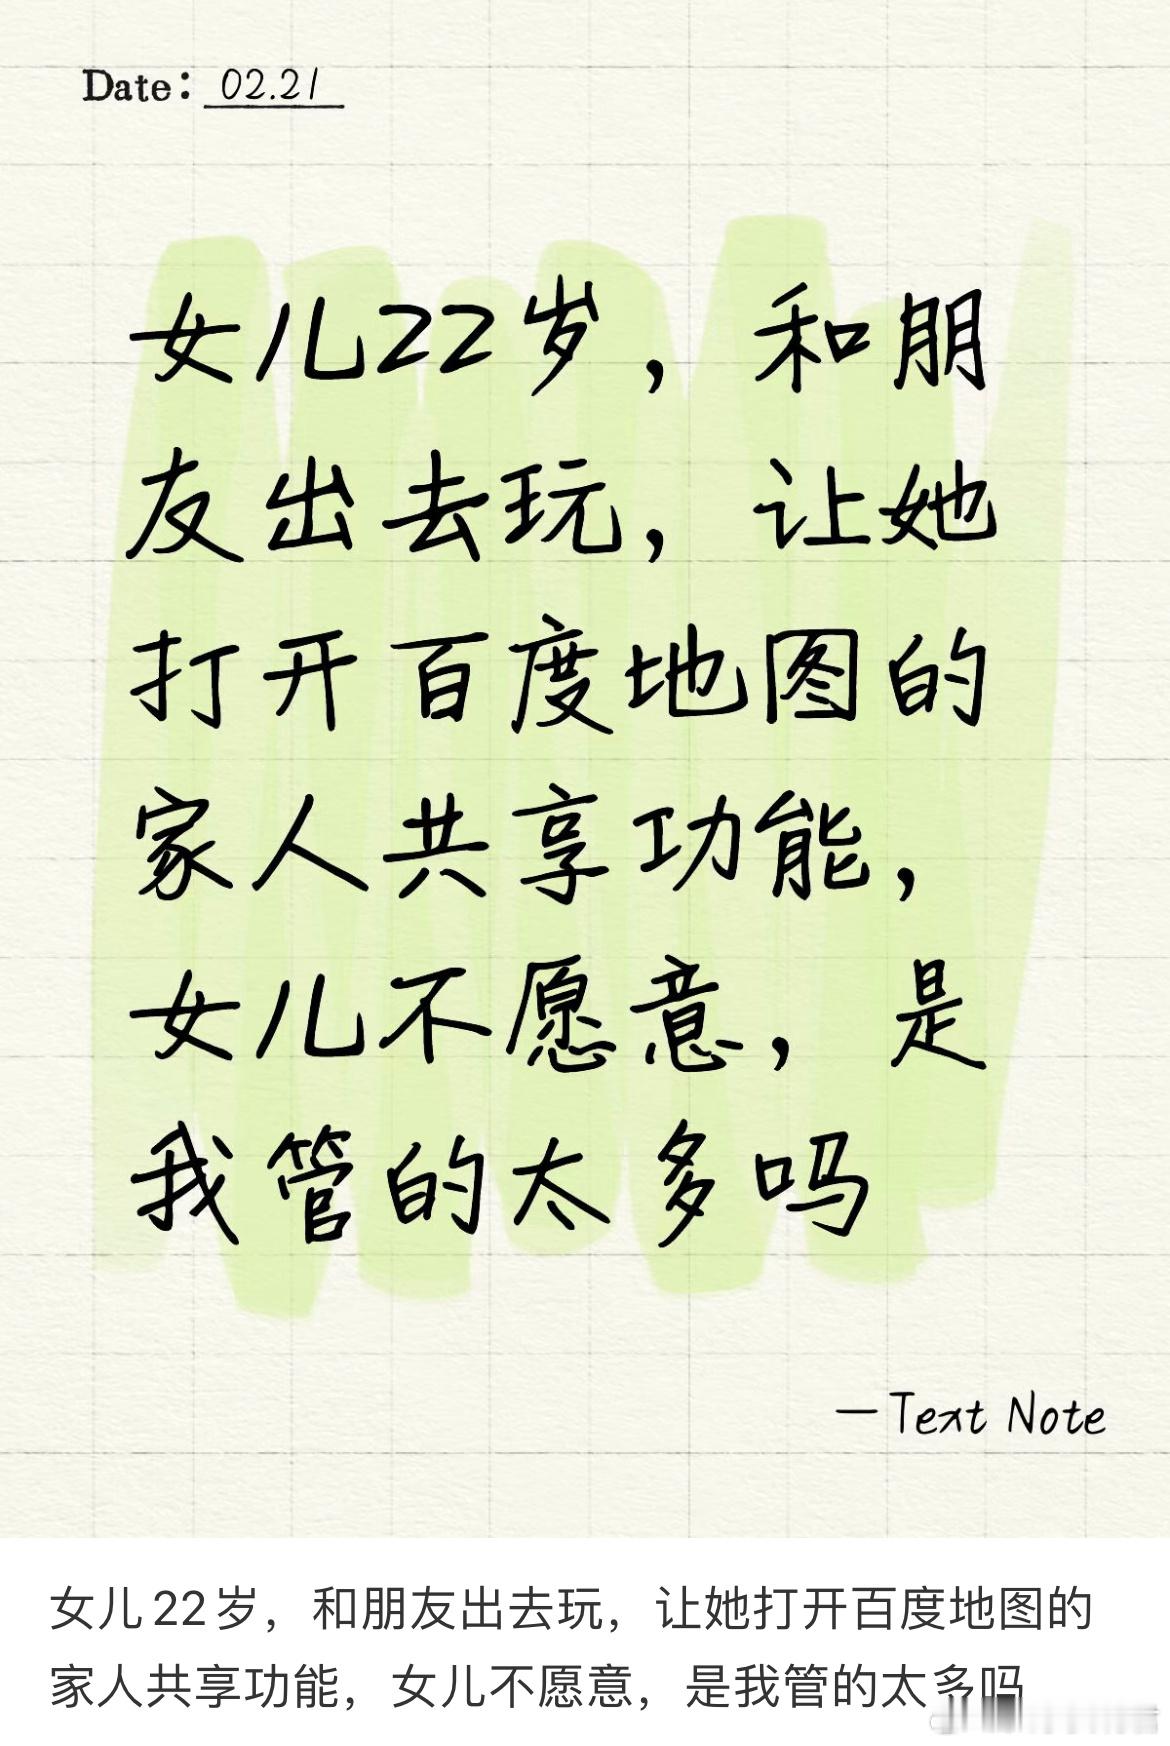 Date: 02.21
女儿22岁，和朋
友出去玩，让她
打开百度地图的
家人共享功能，
女儿不愿意，是
我管的太多吗
—Text Note
女儿22岁，和朋友出去玩，让她打开百度地图的
家人共享功能，女儿不愿意，是我管的太多吗